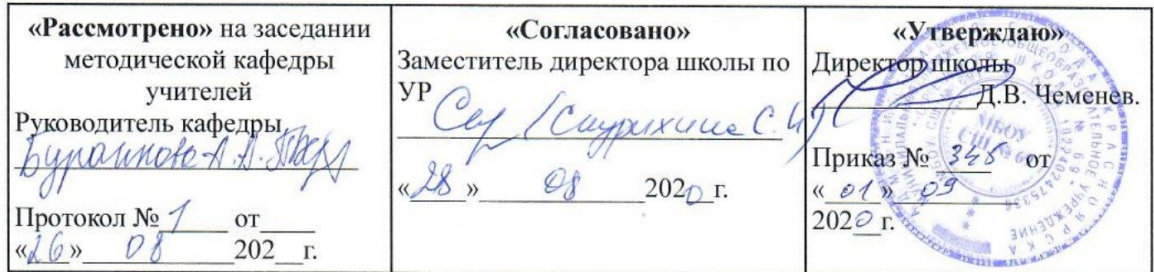 «Рассмотрено» на заседании
методической кафедры
учителей
Руководитель кафедры
Протокол № 1 от
«26» 08 202 г.
«Согласовано»
Заместитель директора школы по
УР
«28» 08 2020 г.
«Утверждаю»
Директор школы
Д.В. Чеменев.
Приказ № 345 от
«01» 09
2020 г.
МБОУ
СШ № 69